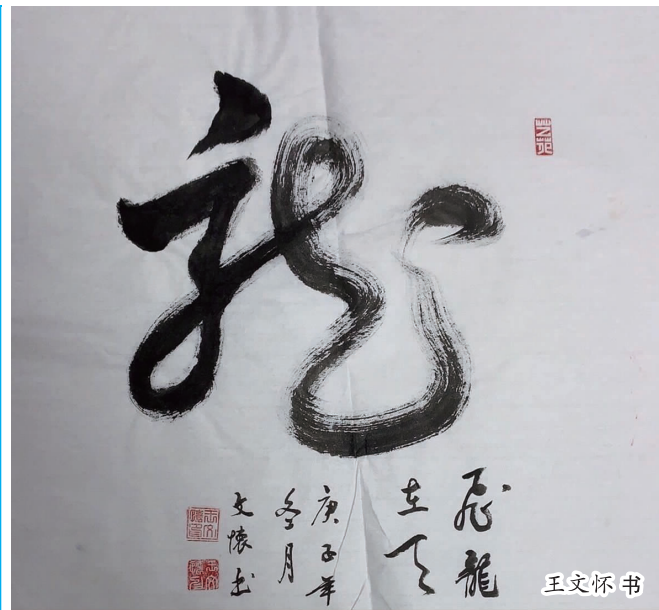 龍
飛龍
在天
庚子年
冬月
文懷書
艺苑
王文怀 书